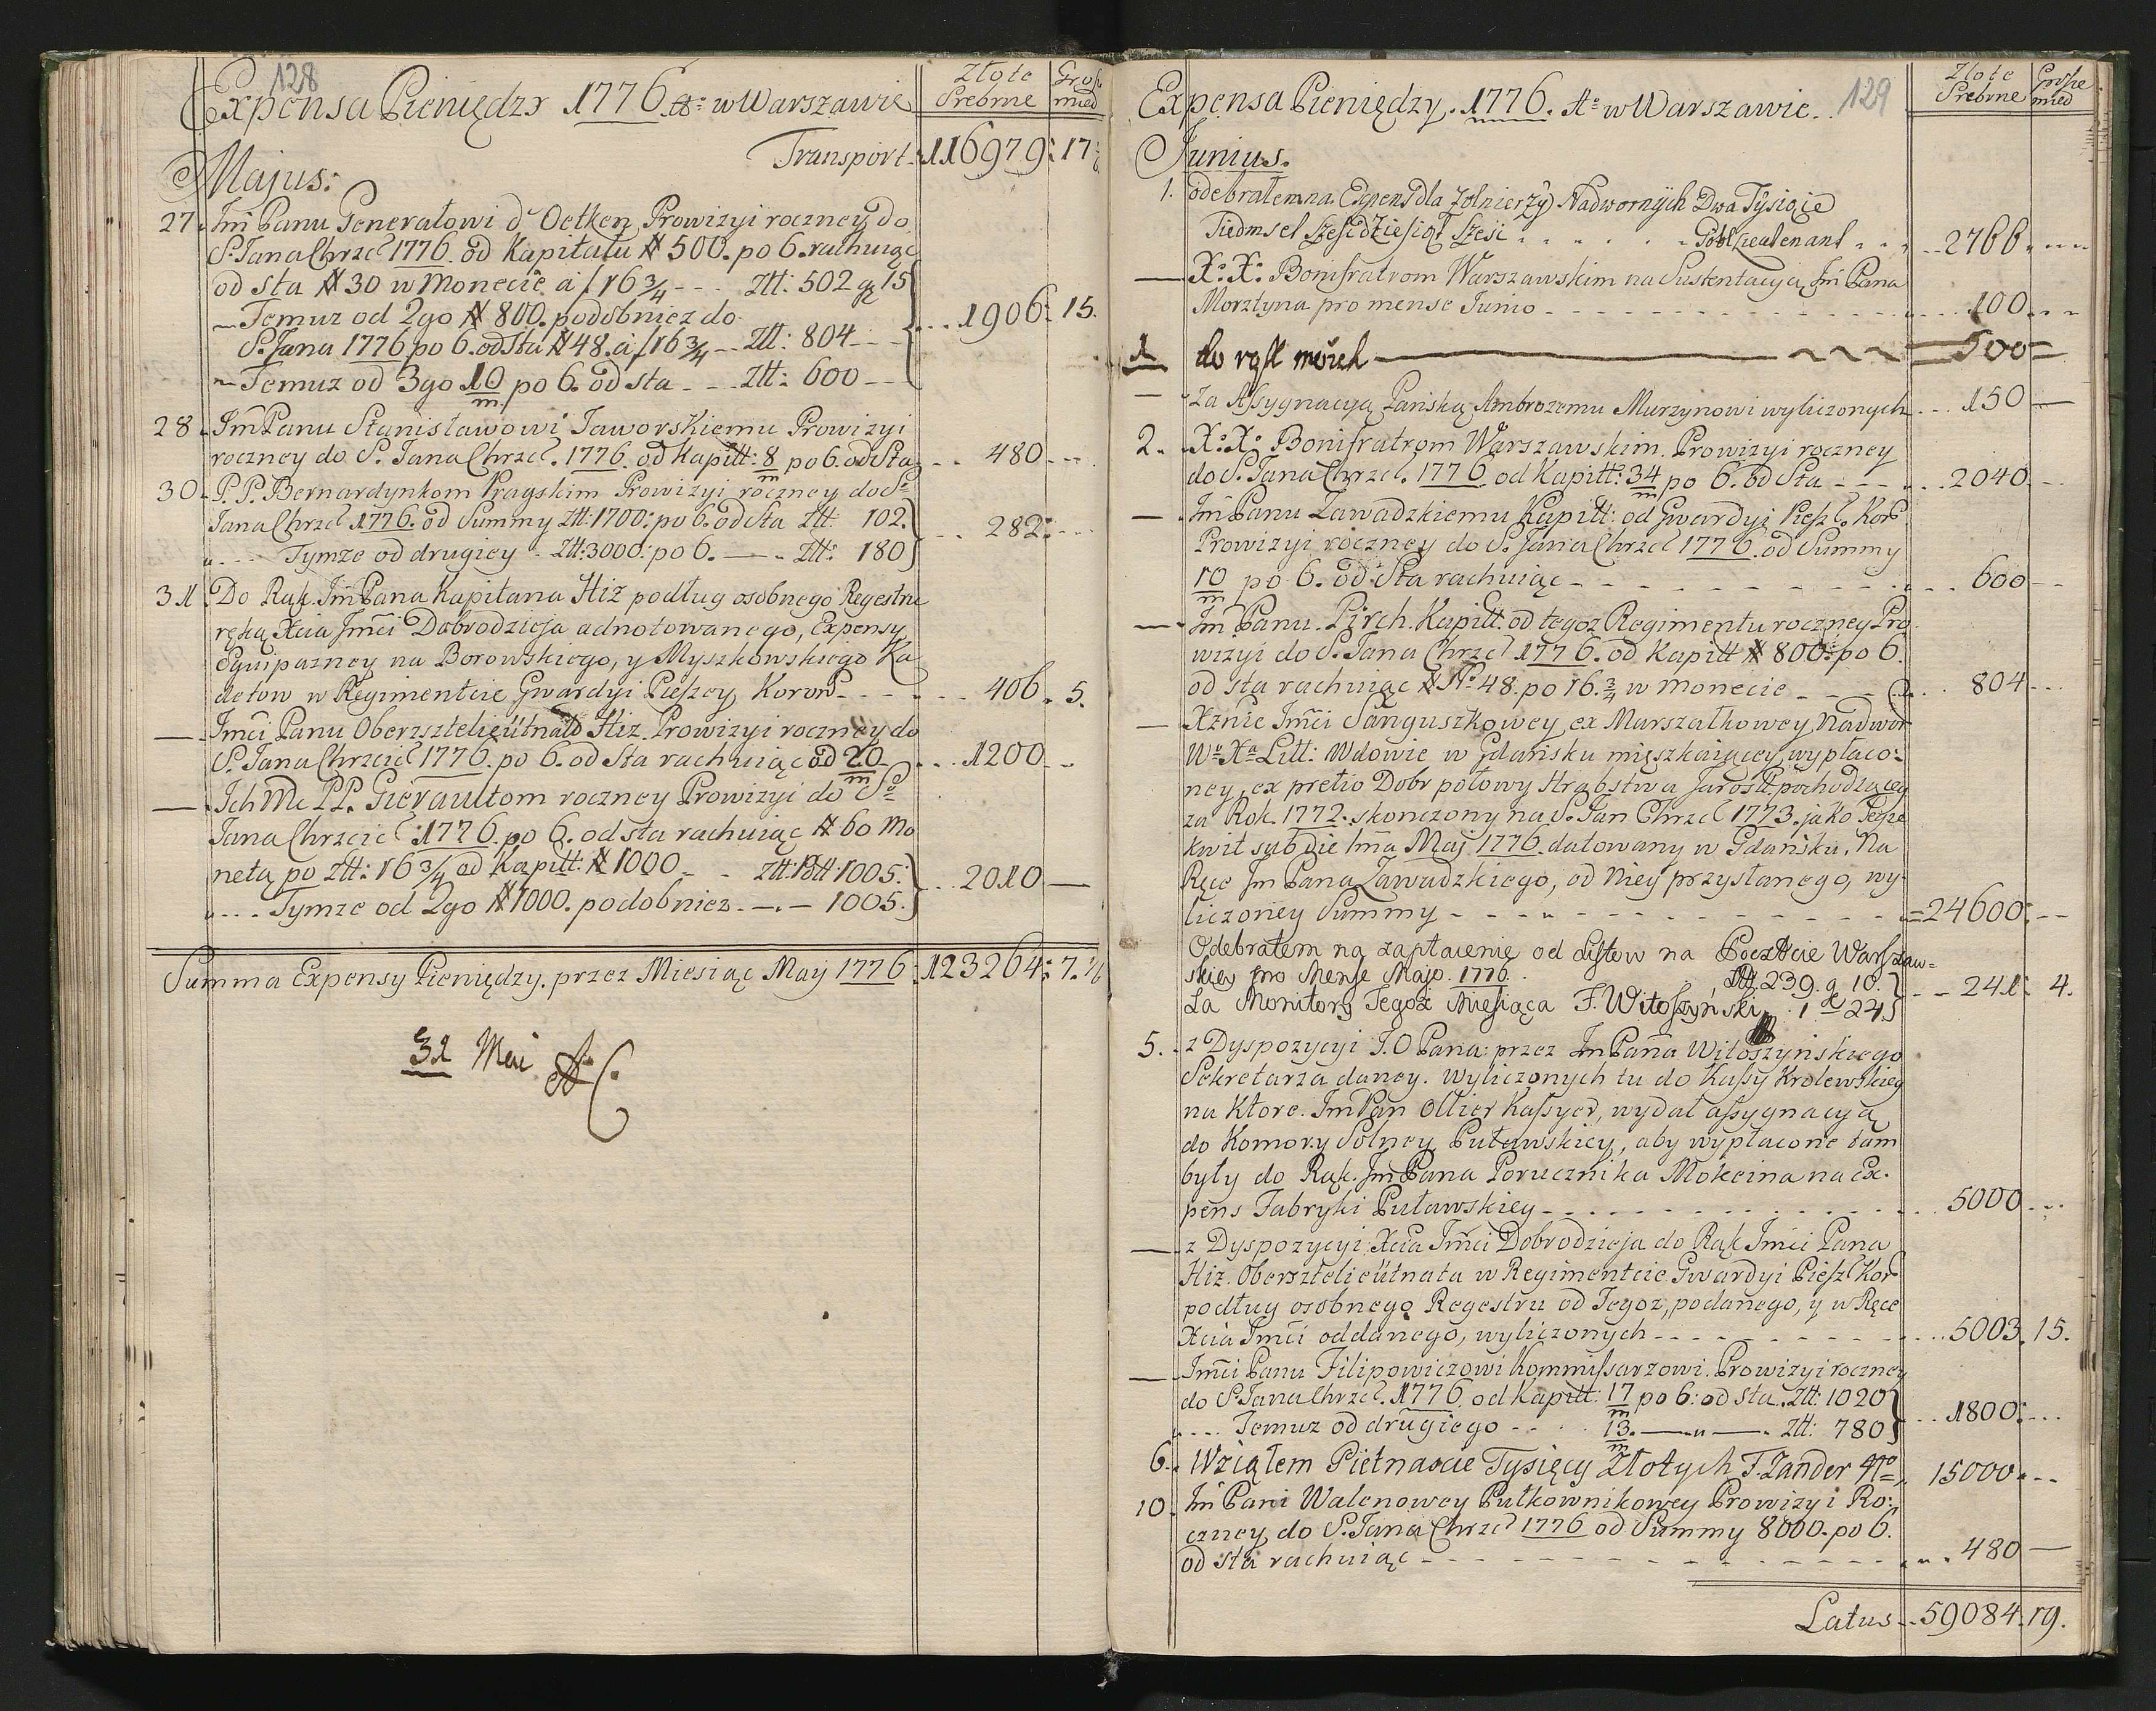 128
Expensa Pieniędzy 1776 Ao w Warszawie
Złote Srebrne
Grosze mied
Transport 116979: 17
Majus:
27. Jm Panu Generałowi d'Oetken Prowizyi roczney do
S. Jana Chrzcl 1776. od Kapitału # 500. po 6. rachuiąc
od sta # 30 w Monecie a f 16 3/4 --- Ztt: 502 gr 15
Temuz od 2go # 800. podobniez do
S. Jana 1776 po 6. od sta # 48. a f 16 3/4 -- Ztt: 804 -- } ... 1906: 15.
Temuz od 3go 10/m po 6. od sta --- Ztt: 600 --
28. Jm Panu Stanisławowi Jaworskiemu Prowizyi
roczney do S. Jana Chrzcl. 1776. od Kapitt: 8/m po 6. od Sta - .. 480. --
30. P. P. Bernardynkom Pragskim Prowizyi roczney do So
Jana Chrzcl 1776. od Summy Ztt: 1700: po 6. od Sta Ztt. 102.
.... Tymze od drugiey - Ztt: 3000: po 6. —— Ztt: 180 } .. 282: ---
31. Do Rąk Jm Pana Kapitana Hiz podług osobnego Regestru
ręką Xcia Jmci Dobrodzieja adnotowanego, Expensy
Equipazney na Borowskiego, y Myszkowskiego Ka
detow w Regimentcie Gwardyi Pieszey Koron ---- .. 406. 5.
— Jmci Panu Oberszteliëutnato Hiz Prowizyi roczney do
S. Jana Chrzciel 1776. po 6. od Sta rachuiąc od 20/m ... 1200. --
— Ich Mc PP. Gieraultom roczney Prowizyi do So
Jana Chrzciel 1776. po 6. od sta rachuiąc # 60 Mo
netą po Ztt: 16 3/4 od Kapitt: # 1000 - - Ztt: 1005:
.... Tymze od 2go # 1000. podobniez. —.— 1005. } ... 2010 —
Summa Expensy Pieniędzy, przez Miesiąc Maij 1776: 123264: 7.
31 Mai AC
129
Expensa Pieniędzy. 1776. Ao w Warszawie.
Złote Srebrne
Grosze mied
Junius.
1. Odebrałem na Expens dla Zolnierzy Nadwornych Dwa Tysiące
Siedmset Sześcdziesiąt Sześć . . . . . . . . 2766. ---
— X: X: Bonifratrom Warszawskim na Sustentacyą Jm Pana
Morsztyna pro mense Junio - - - - - - - ... 100. --
1 do rąk moich ———— ~ ~ ~ = 500 =
— Za Assygnacyą Pańską Ambrozemu Murzynowi wyliczonych ... 150 —
2. X: X: Bonifratrom Warszawskim. Prowizyi roczney
do S. Jana Chrzcl. 1776. od Kapitt: 34/m po 6. od Sta --- ... 2040. --
— Jm Panu Zawadzkiemu Kapitt: od Gwardyi Piesz. Kor
Prowizyi roczney do S. Jana Chrzcl 1776. od Summy
10/m po 6. od Sta rachuiąc - - - - - - - ... 600 --
— Jm Panu. Pirch. Kapitt: od tegoz Regimentu roczney Pro
wizyi do S. Jana Chrzcl 1776. od Kapitt # 800: po 6.
od sta rachuiąc # No 48. po 16. 3/4 w monecie - - - - ... 804 ---
— Xznie Jmci Sanguszkowey, ex Marszałkowey Nadwor
Wo Xa Litt: Wdowie w Gdańsku mięszkaiącey, wypłaco:
ney, ex pretio Dobr połowy Hrabstwa Jarosł. pochodzącey
za Rok. 1772. skonczony na S. Jan Chrzcl 1773. jako Jeyże
kwit sub die 1ma Maj 1776. datowany w Gdańsku, Na
Ręce Jm Pana Zawadzkiego, od Niey przysłanego, wy-
liczoney Summy - - - - - - - - - = 24600: --
Odebrałem na zapłacenie od Listow na Poczcie Warszaw=
skiey pro Mense Majo. 1776. Ztt 239. g 10.
Za Monitory Tegoż Miesiąca J. Witoszynski . 1 g 24. } .. 241: 4.
5. z Dyspozycyi J. O Pana: przez Jm Pana Witoszyńskiego
Sekretarza daney. Wyliczonych tu do Kassy Krolewskiey
na ktore. Jm Pan Ollier Kassyer, wydał assygnacyą
do Komory Solney Puławskiey, aby wypłacone tam
były do Rąk. Jm Pana Porucznika Mokcina na Ex-
pens Fabryki Puławskiey - - - - - - - - ... 5000 ...
— z Dyspozycyi Xcia Jmci Dobrodzieja do Rąk Jmci Pana
Hiz. Oberszteliëutnata w Regimentcie Gwardyi Piesz Kor
podług osobnego Regestru od Tegoz, podanego, y w Ręce
Xcia Jmci oddanego, wyliczonych - - - - - - - ... 5003. 15.
— Jmci Panu Filipowiczowi Kommissarzowi. Prowizyi roczney
do S. Jana Chrzcl. 1776. od Kapitt: 17/m po 6: od sta. Ztt: 1020
.... Temuz od drugiego - - - 13/m. —.— Ztt: 780 } ... 1800: ---
6. Wziąłem Piętnascie Tysięcy Złotych J. Zander . 15000. --
10. Jm Pani Walenowey Pułkownikowey Prowizyi Ro:
czney do S. Jana Chrzcl 1776 od Summy 8000. po 6.
od sta rachuiąc - - - - - - - - - ... 480 —
Latus .. 59084. 19.